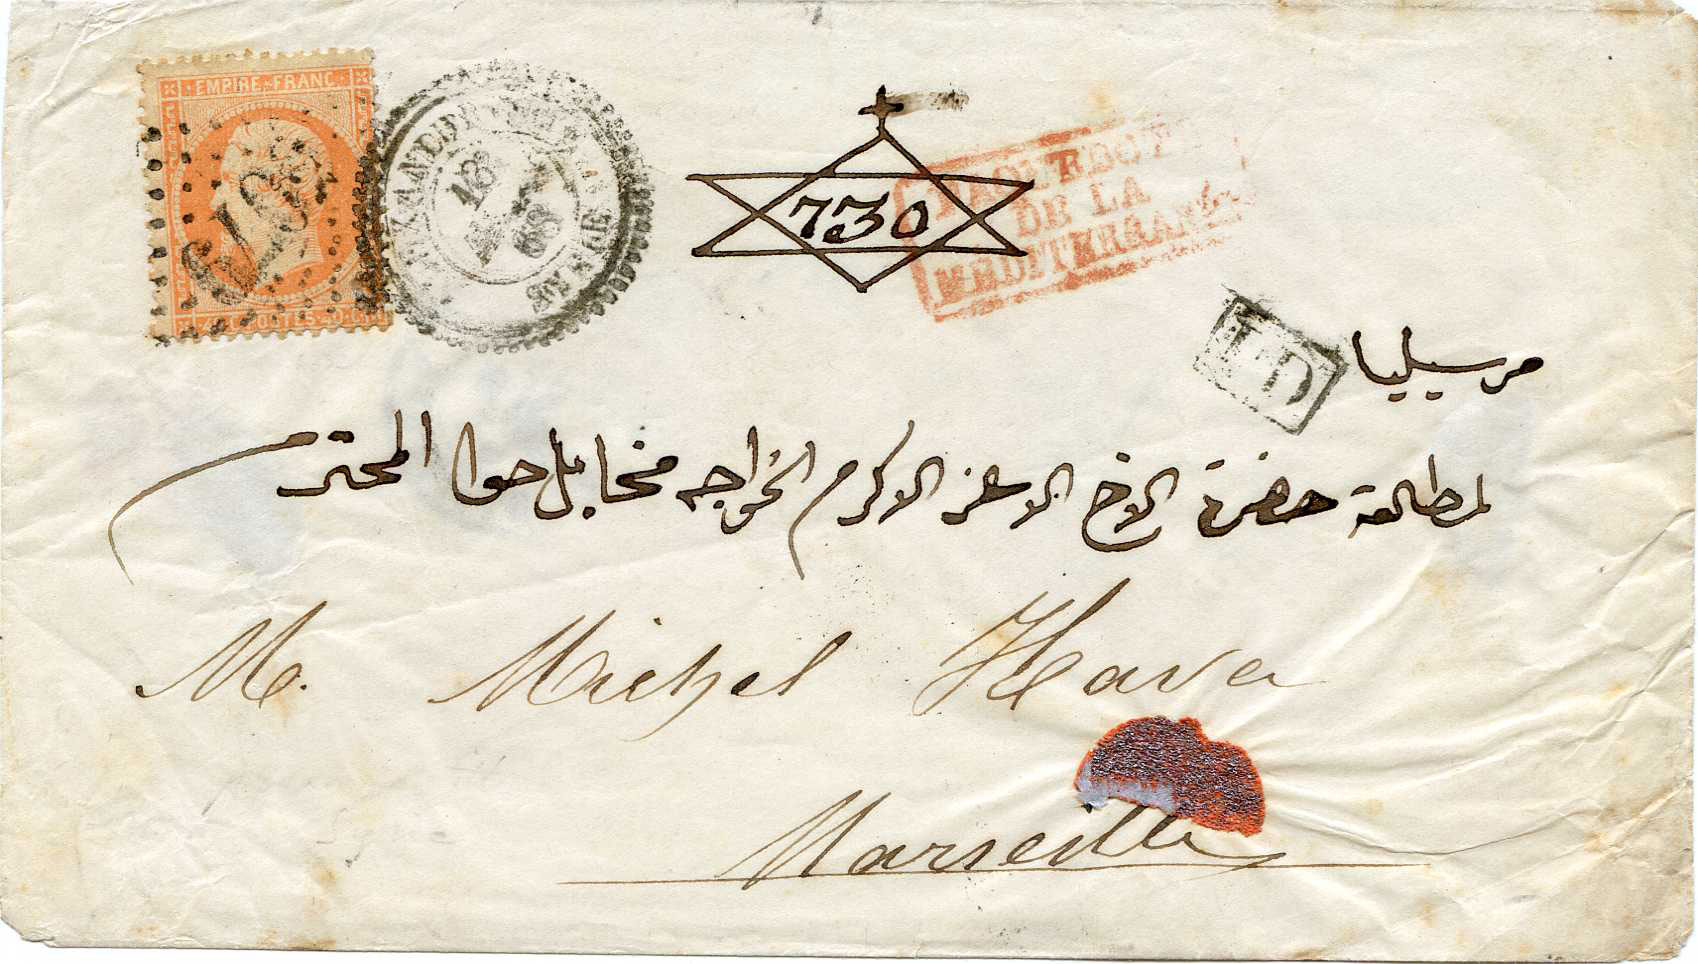 EMPIRE FRANC
40 C POSTES 40 C
18
68
730
PAQUEBOTS
DE LA
MEDITERRANEE
PD
مرسيليا
لمطالعة حضرة الاخ الاعز الاكرم الخواجه مخايل حوا المحترم
M. Michel Hava
Marseille